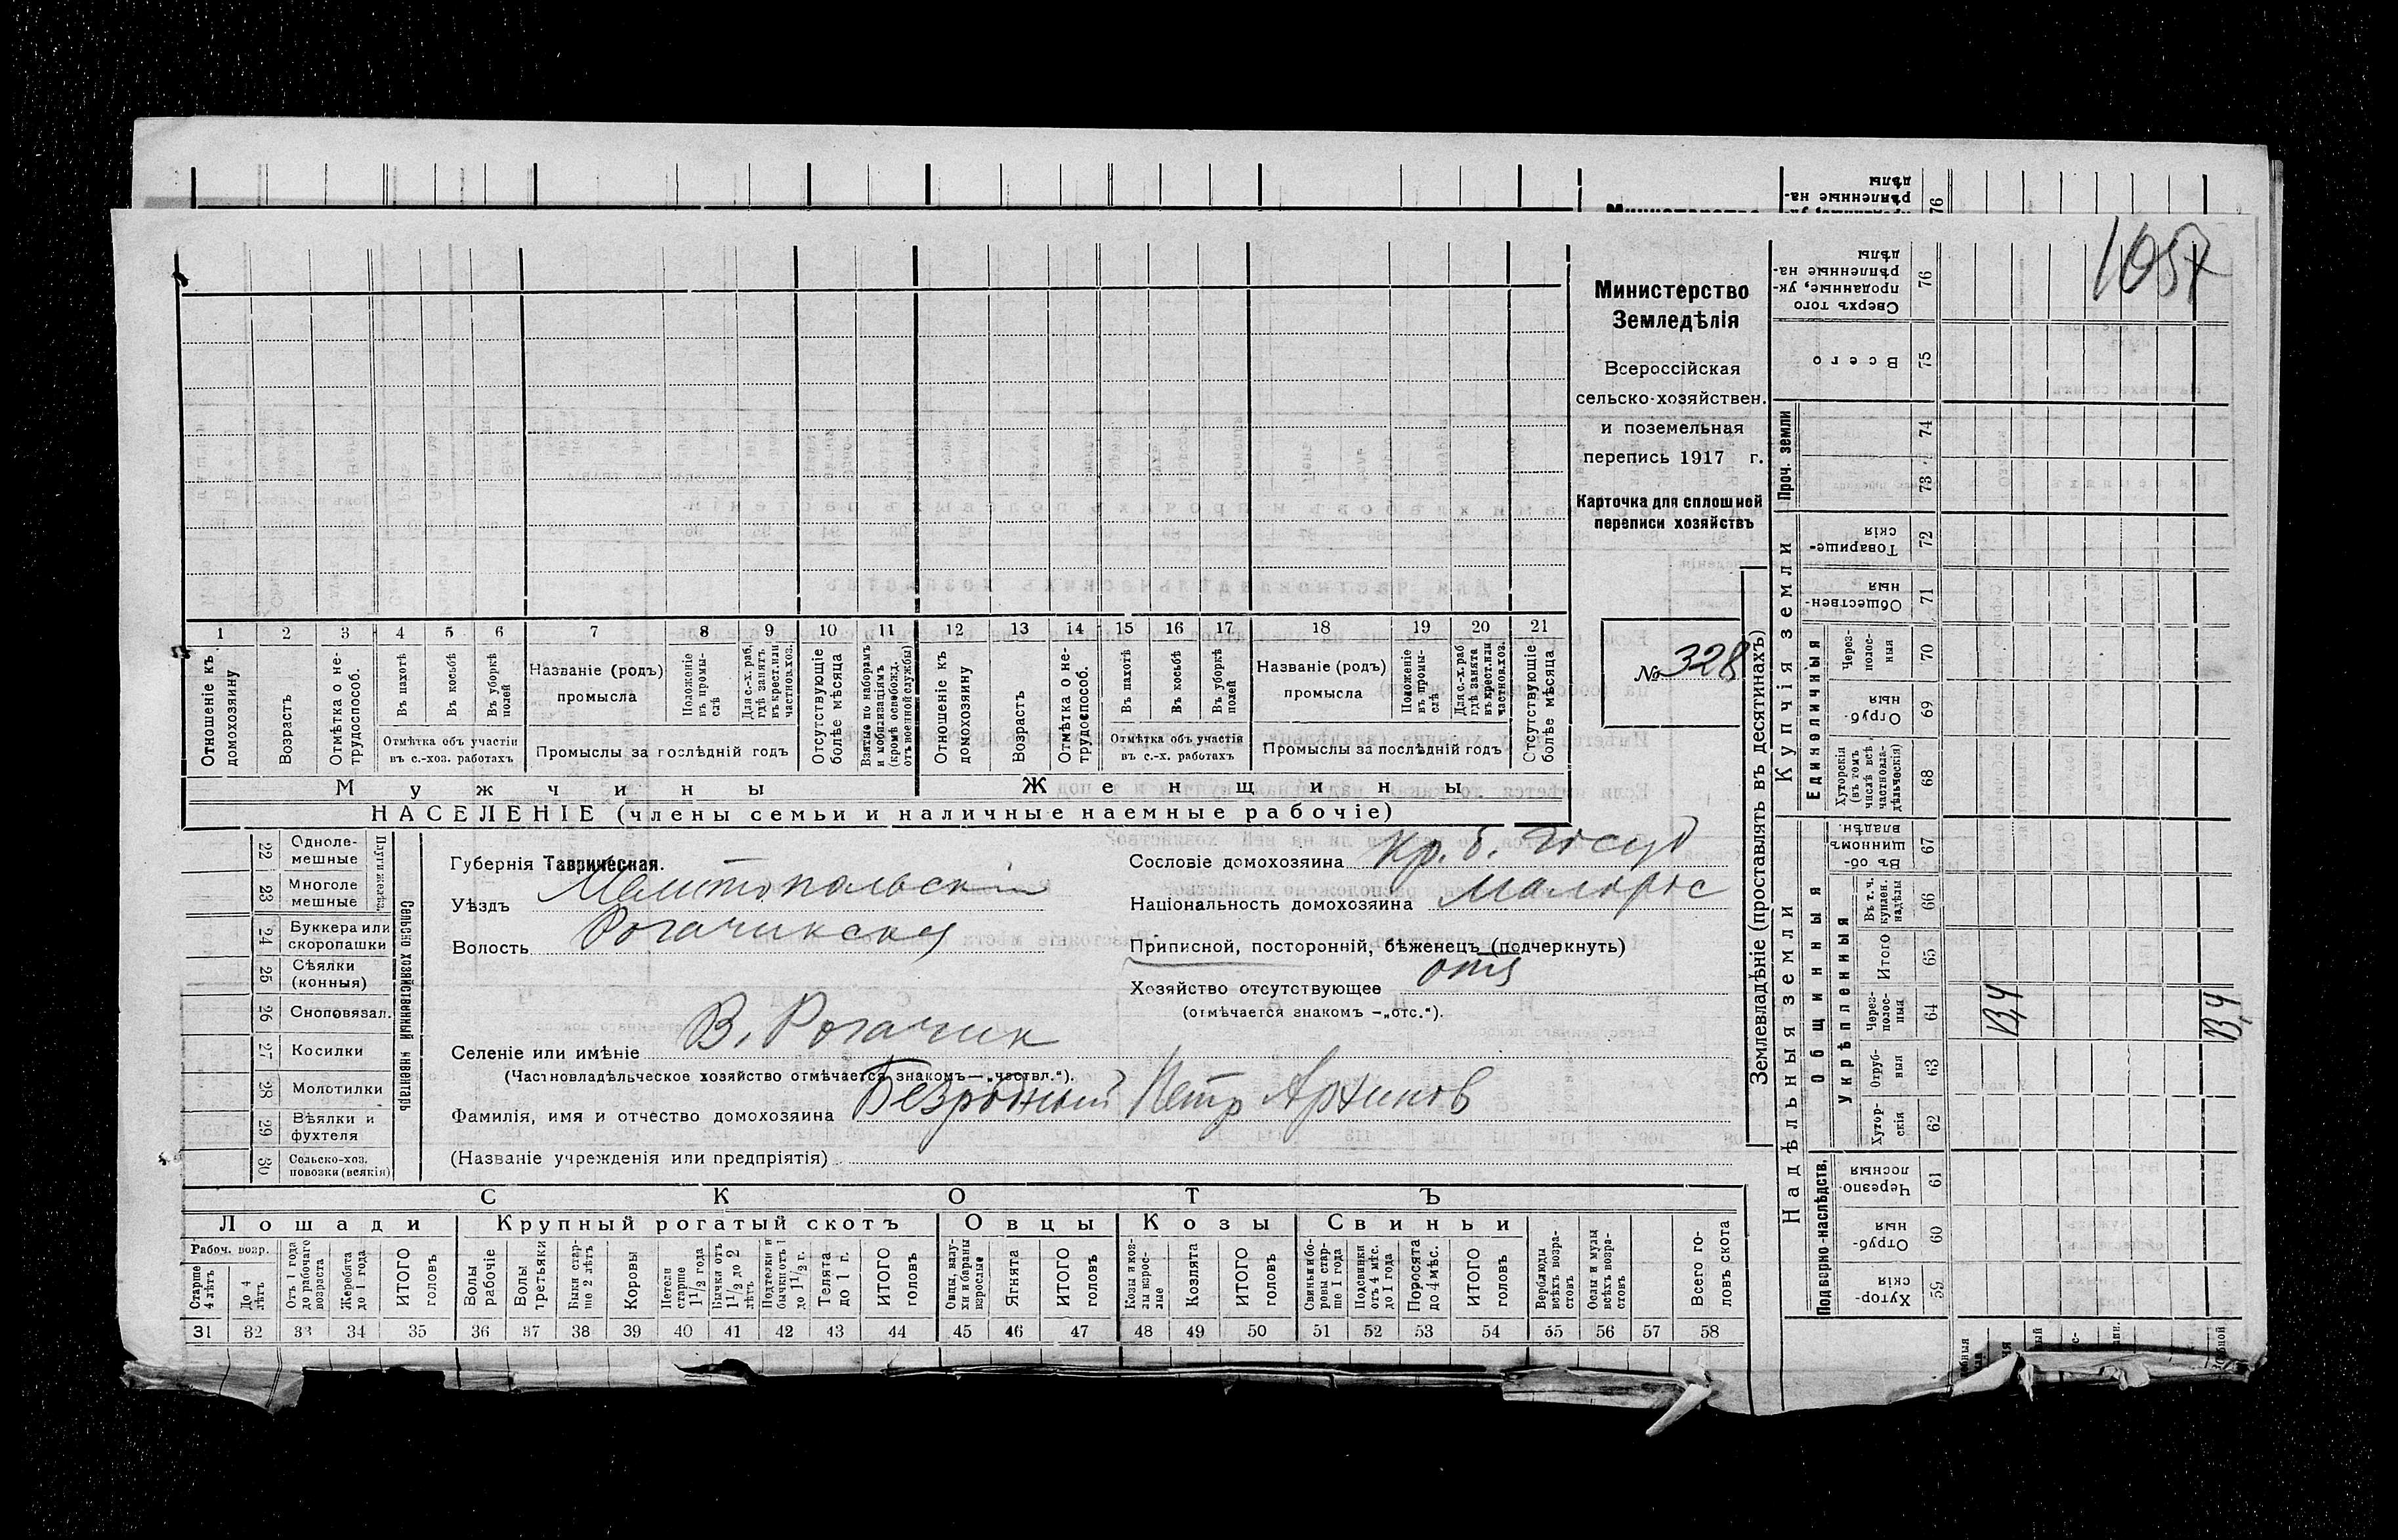 1057
Министерство
Земледѣлія
Всероссійская
сельско-хозяйствен.
и поземельная
перепись 1917 г.
Карточка для сплошной
переписи хозяйствъ
№ 328
1 2 3 4 5 6 7 8 9 10 11 12 13 14 15 16 17 18 19 20 21
Отношеніе къ домохозяину
Возрастъ
Отмѣтка о не-трудоспособ.
Въ пахотѣ
Въ косьбѣ
Въ уборкѣ полей
Отмѣтка объ участіи
въ с.-хоз. работахъ
Названіе (родъ)
промысла
Положеніе въ промы-слѣ
Для с.-х. раб. гдѣ занятъ въ крест. или частнов. хоз.
Промыслы за послѣдній годъ
Отсутствующіе болѣе мѣсяца
Взятые по наборамъ и мобилизаціямъ (кромѣ освобожд. отъ военной службы)
Отношеніе къ домохозяину
Возрастъ
Отмѣтка о не-трудоспособ.
Въ пахотѣ
Въ косьбѣ
Въ уборкѣ полей
Отмѣтка объ участіи
въ с.-х. работахъ
Названіе (родъ)
промысла
Положеніе въ промы-слѣ
Для с.-х. раб. гдѣ занята въ крест. или частнов. хоз.
Промыслы за послѣдній годъ
Отсутствующіе болѣе мѣсяца
Мужчины Женщины
НАСЕЛЕНІЕ (члены семьи и наличные наемные рабочіе)
Сельско хозяйственный инвентарь
Плуги желѣз.
22 Одноле-мешные
23 Многоле мешные
24 Буккера или скоропашки
25 Сѣялки (конныя)
26 Сноповязал.
27 Косилки
28 Молотилки
29 Вѣялки и фухтеля
30 Сельско-хоз. повозки (всякія)
Губернія Таврическая.
Уѣздъ Мелитопольскій
Волость Рогачикская
Селеніе или имѣніе В. Рогачик
(Частновладѣльческое хозяйство отмѣчается знакомъ—„частвл.“).
Фамилія, имя и отчество домохозяина Безродный Петр Архипов
(Названіе учрежденія или предпріятія)
Сословіе домохозяина Кр. б. Госуд
Національность домохозяина Малорос
Приписной, посторонній, бѣженецъ (подчеркнуть)
Хозяйство отсутствующее
(отмѣчается знакомъ —„отс.“).
СКОТЪ
Лошади Крупный рогатый скотъ Овцы Козы Свиньи
Рабоч. возр.
Старше 4 лѣтъ
До 4 лѣтъ
Отъ 1 года до рабочаго возраста
Жеребята до 1 года
ИТОГО головъ
Волы рабочіе
Волы третьяки
Быки стар-ше 2 лѣтъ
Коровы
Нетели старше 1 1/2 года
Бычки отъ 1 1/2 до 2 лѣтъ
Подтелки и бычки отъ 1 до 1 1/2 г.
Телята до 1 г.
ИТОГО головъ
Овцы, валу-хи и бараны взрослые
Ягнята
ИТОГО головъ
Козы и коз-лы взрос-лые
Козлята
ИТОГО головъ
Свиньи и бо-ровы стар-ше 1 года
Подсвинки отъ 4 мѣс. до 1 года
Поросята до 4 мѣс.
ИТОГО головъ
Верблюды всѣхъ возра-стовъ
Ослы и мулы всѣхъ возра-стовъ
Всего го-ловъ скота
31 32 33 34 35 36 37 38 39 40 41 42 43 44 45 46 47 48 49 50 51 52 53 54 55 56 57 58
Землевладѣніе (проставлять въ десятинахъ)
Сверхъ того проданные, ук-рѣпленные на-дѣлы 76
Всего 75
Проч. земли 74 73
Купчія земли
Товарище-скія 72
Обществен-ныя 71
Единоличныя
Через-полос-ныя 70
Отруб-ныя 69
Хуторскія (въ томъ числѣ всѣ частновла-дѣльческія) 68
Надѣльныя земли
Общинныя
Въ об-щинномъ владѣн. 67
Укрѣпленныя
Въ т. ч. куплен. надѣлы 66
Итого 65
Через-полос-ныя 64
Отруб-ныя 63
Хутор-скія 62
Подворно-наслѣдств.
Черезпо-лосныя 61
Отруб-ныя 60
Хутор-скія 59
13,4 13,4